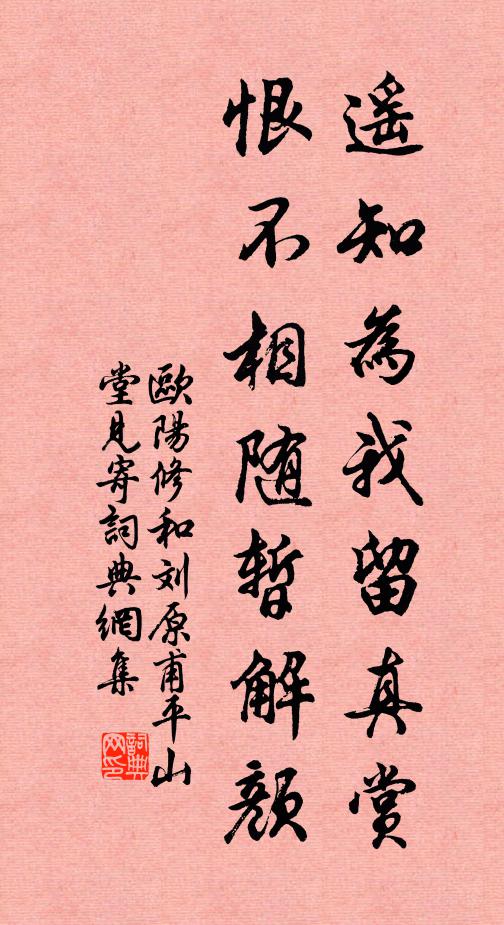 遥知為我留真赏
恨不相随暫解顏
歐陽修和刘原甫平山
堂見寄詞典網集
詞典
网印